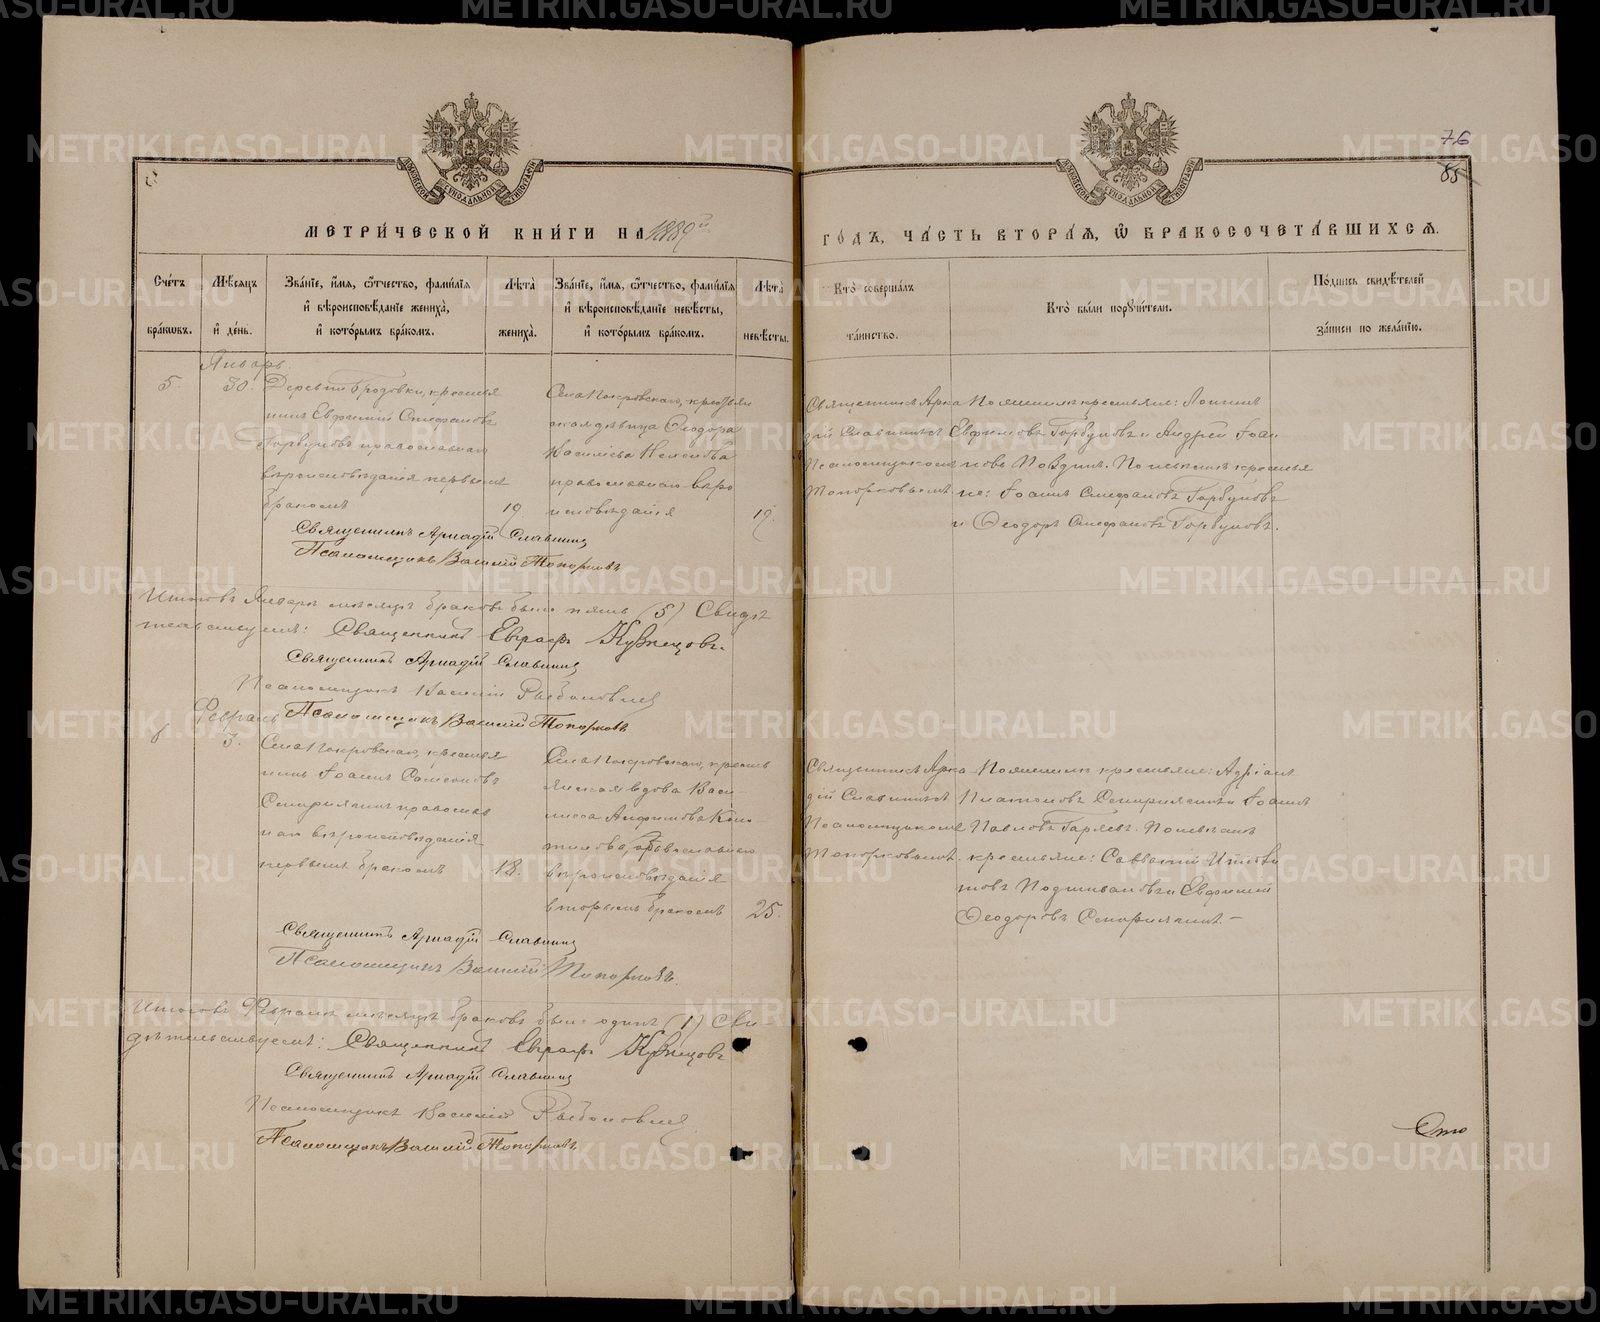 76
85
МЕТРИ́ЧЕСКОЙ КНИ́ГИ НА 1889й
ГО́ДЪ, ЧА́СТЬ ВТОРА́Я, Ѡ БРАКОСОЧЕТА́ВШИХСЯ.
Сче́тъ бра́кѡвъ.
Мѣ́сяцъ и҆ де́нь.
Зва́нїе, и҆́мя, ѻ҆́тчество, фами́лїя
и҆ вѣроисповѣ́данїе жениха̀,
и҆ кото́рымъ бра́комъ.
Лѣ́та жениха̀.
Зва́нїе, и҆́мя, ѻ҆́тчество, фами́лїя
и҆ вѣроисповѣ́данїе невѣ́сты,
и҆ кото́рымъ бра́комъ.
Лѣ́та невѣ́сты.
Кто̀ соверша́лъ
та́инство.
Кто̀ бы́ли порꙋчи́тели.
По́дпись свидѣ́телей
за́писи по жела́нїю.
Январь
5.
30.
Деревни Бродовки, крестья
нинъ Евфимій Стефановъ
Горбуновъ православнаго
вѣроисповѣданія первымъ
бракомъ
19.
Села Покровскаго, крестьян
ская дѣвица Ѳеодора
Васильева
православнаго вѣро
исповѣданія
19.
Священникъ Арка
дій Славнинъ
Псаломщикомъ
Топорковымъ
По женихѣ крестьяне: Логинъ
Евфимовъ Горбуновъ и Андрей Іоан
новъ По невѣстѣ крестья
не: Іоаннъ Стефановъ Горбуновъ
и Ѳеодоръ Стефановъ Горбуновъ.
Священникъ Аркадій Славнинъ
Псаломщикъ Василій Топорковъ
Итого въ Январѣ мѣсяцѣ браковъ было пять (5) Свидѣ
тельствуемъ: Священникъ Евграфъ Кузнецовъ.
Священникъ Аркадій Славнинъ
Псаломщикъ Василій
Псаломщикъ Василій Топорковъ
Февраль
6
3.
Села Покровскаго, крестья
нинъ Іоаннъ
православ
наго вѣроисповѣданія
первымъ бракомъ
18.
Села Покровскаго, кресть
янская вдова Васи
лисса Анфимова
православнаго
вѣроисповѣданія
вторымъ бракомъ
25.
Священникъ Арка
дій Славнинъ
Псаломщикомъ
Топорковымъ.
По женихѣ крестьяне: Адріанъ
Платоновъ и Іоаннъ
Павловъ Горяевъ. По невѣстѣ
крестьяне: Савватій
и Евфимій
Ѳеодоровъ
Священникъ Аркадій Славнинъ
Псаломщикъ Василій Топорковъ.
Итого въ Февралѣ мѣсяцѣ браковъ былъ одинъ (1) Сви-
дѣтельствуемъ: Священникъ Евграфъ Кузнецовъ
Священникъ Аркадій Славнинъ
Псаломщикъ Василій
Псаломщикъ Василій Топорковъ
METRIKI.GASO-URAL.RU